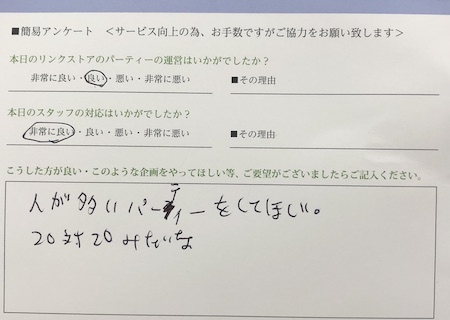 ■簡易アンケート　＜サービス向上の為、お手数ですがご協力をお願い致します＞
本日のリンクストアのパーティーの運営はいかがでしたか？
非常に良い・良い・悪い・非常に悪い　■その理由
本日のスタッフの対応はいかがでしたか？
非常に良い・良い・悪い・非常に悪い　■その理由
こうした方が良い・このような企画をやってほしい等、ご要望がございましたらご記入ください。
人が多いパーティーをしてほしい。
20対20みたいな